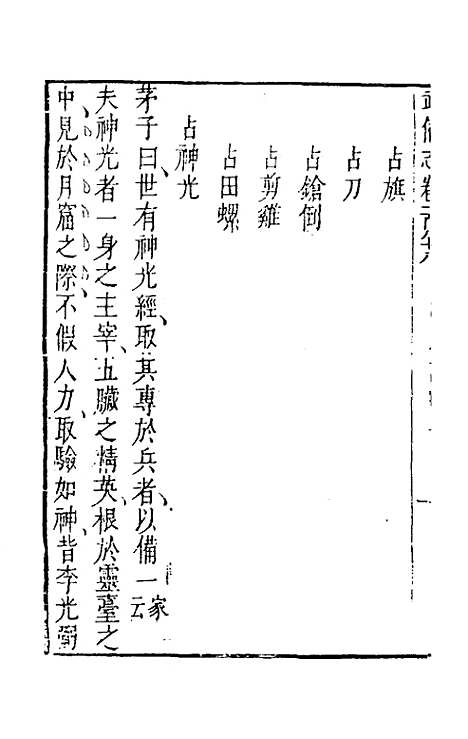 占旗
占刀
占鎗倒
占剪雞
占田螺
占神光
茅子曰世有神光經取其專於兵者以備一家云
夫神光者一身之主宰五臟之精英根於靈臺之
中見於月窟之際不假人力取驗如神昔李光弼